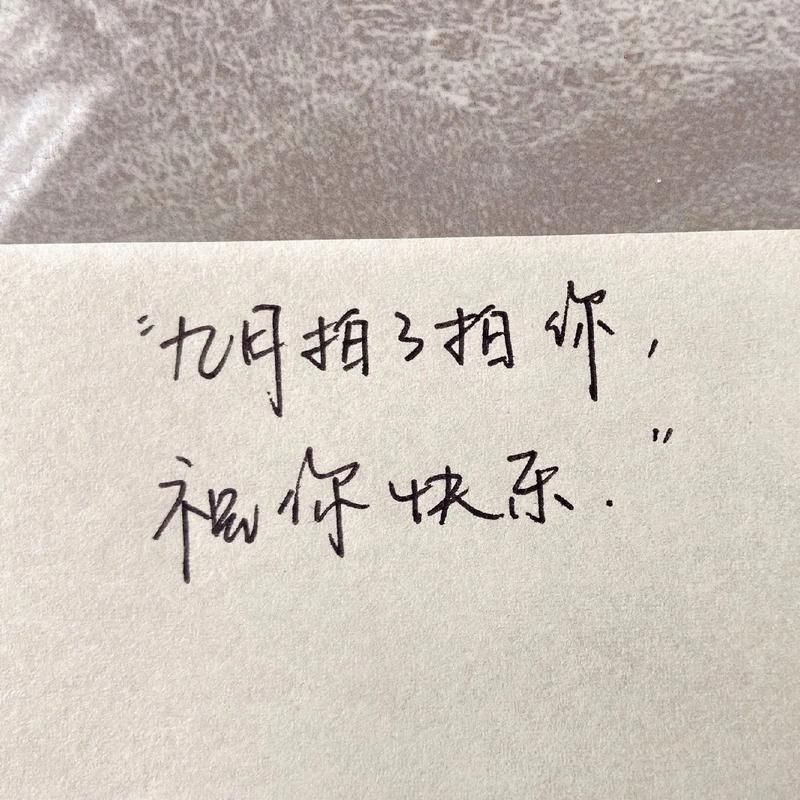 “九月拍了拍你，
祝你快乐.”